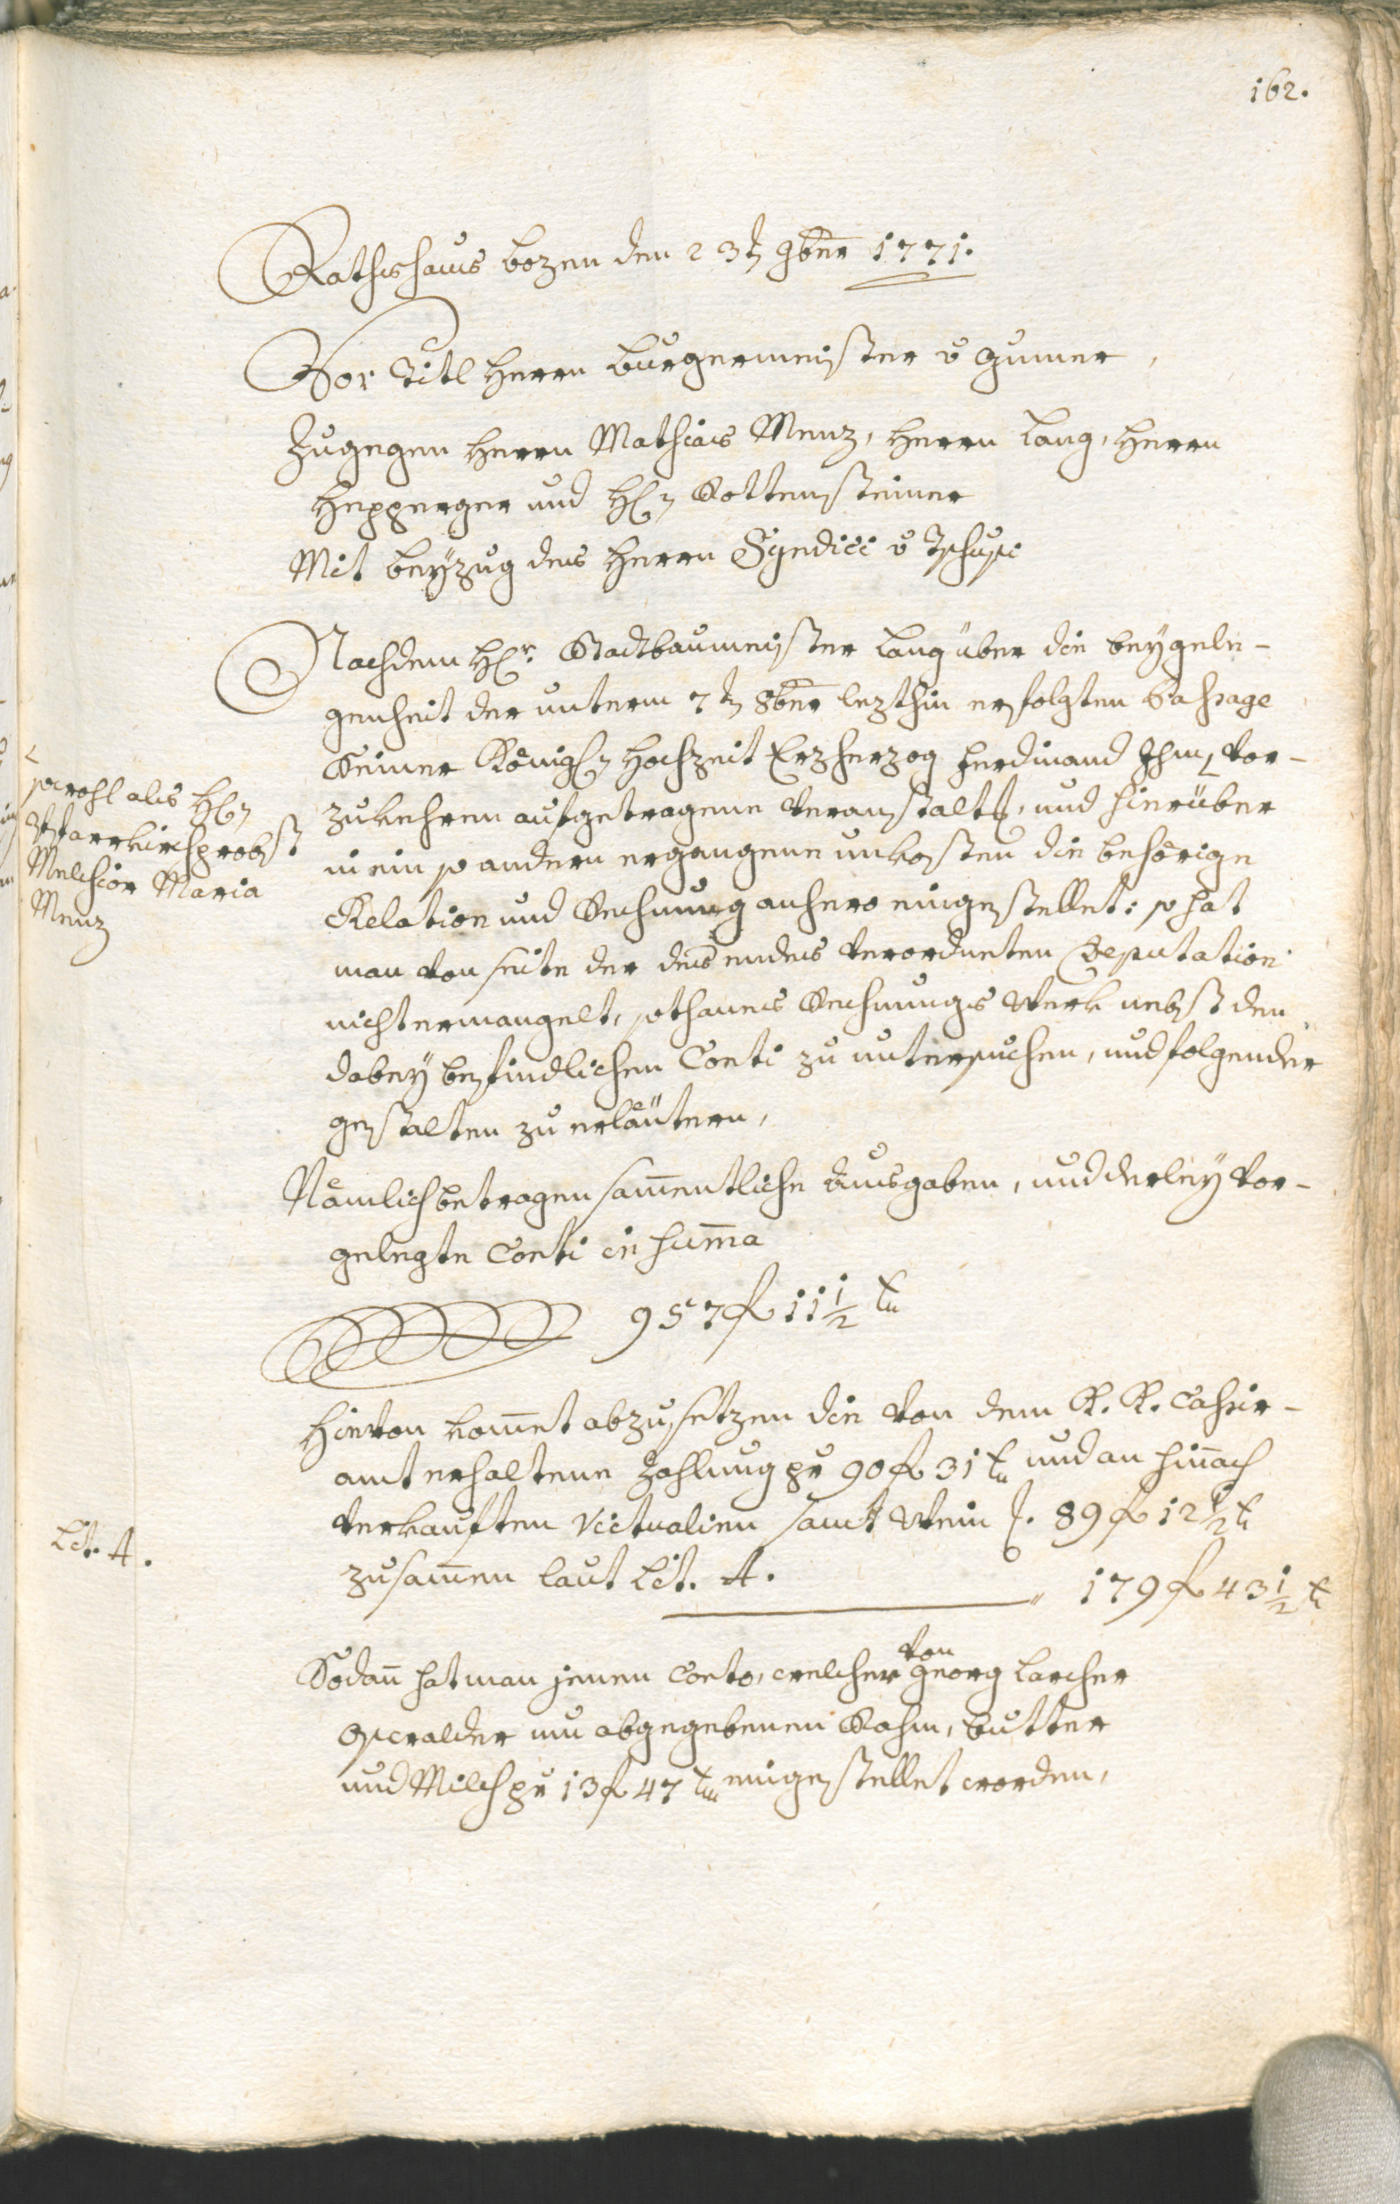 162.
Rathshaus bozen den 23t 9ber 1771.
Vor Titl Herrn burgermeister v Gumer,
Zugegen Herrn Mathias Menz, Herrn Lang, Herrn
Hepperger und H Rottensteiner
Mit beÿzug des Herrn Syndici v Tschusi
Nachdem Hr. Stadtbaumeister Lang über die beÿgele-
genheit der unterm 7t 8ber lezthin erfolgten Passage
Seiner Königl Hochheit Erzherzog Ferdinand Ihm vor-
zukehren aufgetragene Veranstalt, und hierüber
in ein so andern ergangene unkosten die behörige
Relation und Rechnung anhero eingestellet: so hat
man von seite der des endes verordneten Deputation
nicht ermangelt, sothanes Rechnungs Werk nebst den
dabeÿ befindlichen Conti zu untersuchen, und folgender
gestalten zu erläutern,
sowohl als H
Pfarrkirchprobst
Melchior Maria
Menz
Nämlich betragen sammentliche Ausgaben, und derleÿ vor-
gelegte Conti in Summa
957 f 11 1/2 x
Hievon kommet abzusetzen die von dem K. K. Cassir-
amt erhaltene Zahlung pr 90 f 31 x und an hinnach
verkauften Victualien samt Wein 89 f 12 1/2 x
Lit. A.
zusammen laut Lit. A. 179 f 43 1/2 x
Sodann hat man jenen Conto, welcher von Georg Larcher
Oswalder um abgegebenen Rahm, butter
und Milch pr 13 f 47 x eingestellet worden,